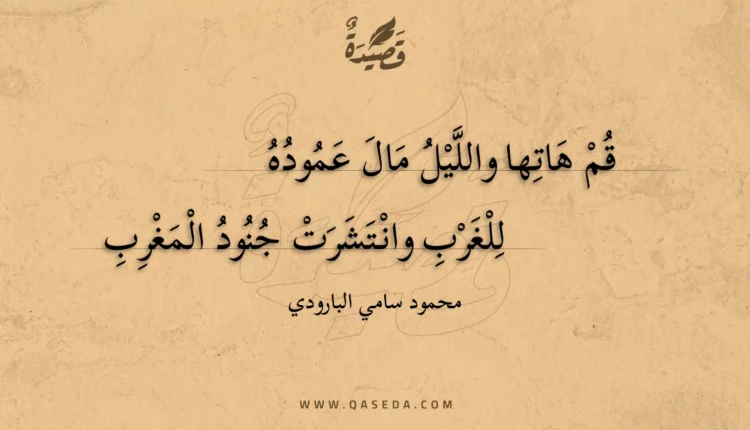 قَصِيْدَةٌ
قُمْ هَاتِها واللَّيْلُ مَالَ عَمُودُهُ
لِلْغَرْبِ وانْتَشَرَتْ جُنُودُ الْمَغْرِبِ
محمود سامي البارودي
WWW.QASEDA.COM